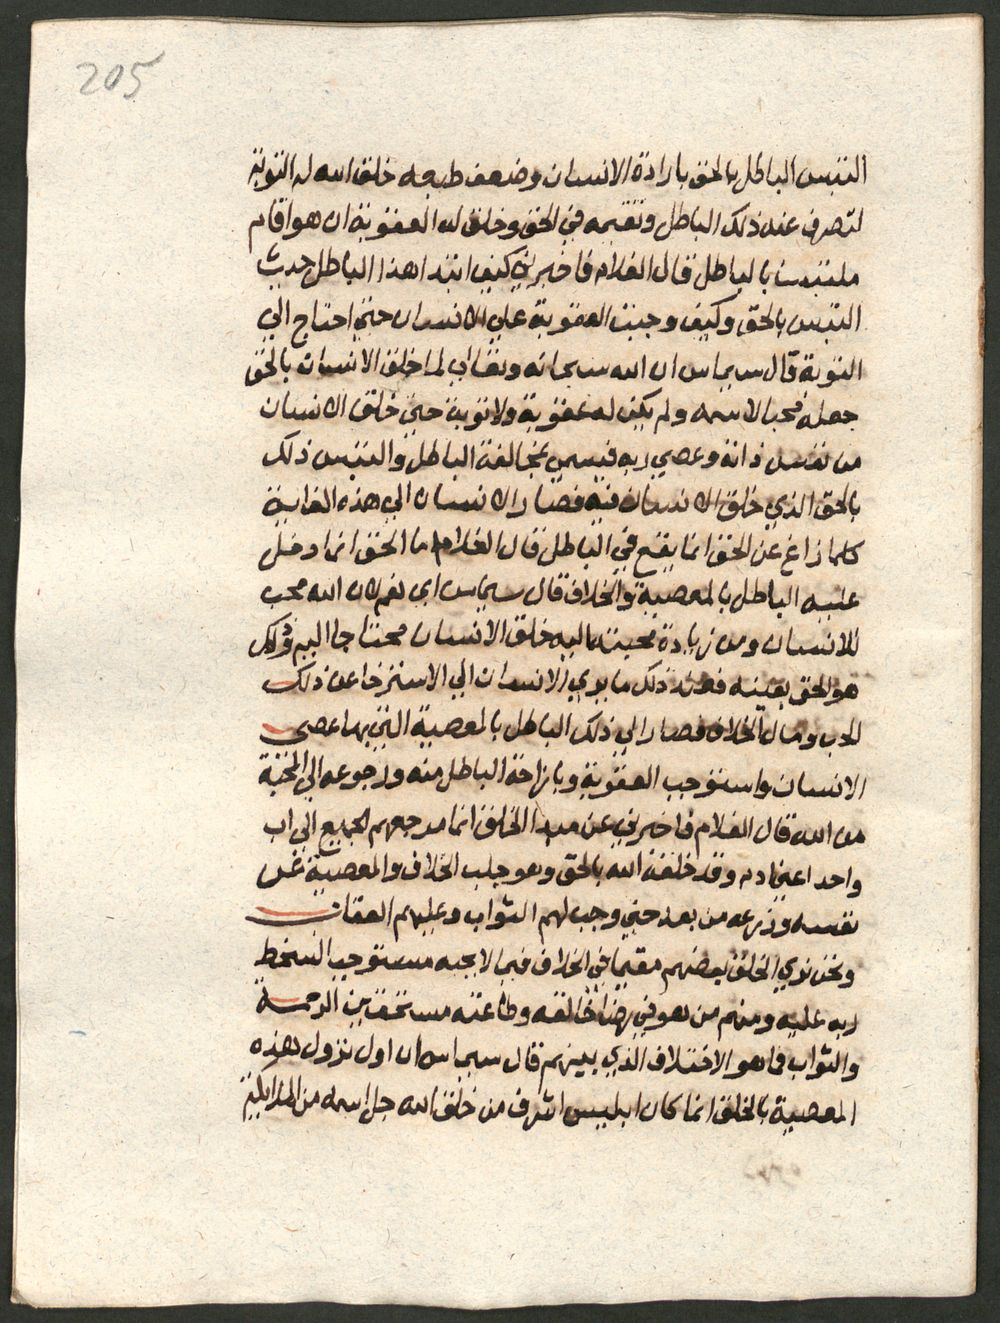 205
التبس الباطل بالحق بارادة الانسان وضعف طبعه خلق الله له التوبة
لتصرف عنه ذلك الباطل وتقيمه في الحق وخلق له العقوبة ان هو اقام
ملتبسا بالباطل قال الغلام فاخبرني كيف ابتدا هذا الباطل حيث
التبس بالحق وكيف وجبت العقوبة علي الانسان حتي احتاج الي
التوبة قال سيماس ان الله سبحانه وتعالي لما خلق الانسان بالحق
جعله محبا لاسمه ولم يكن له عقوبة ولا توبة حتي خلق الانسان
من نفس ذاته وعصي ربه فيسمي بمخالفة الباطل والتبس ذلك
بالحق الذي خلق الانسان فيه فصار الانسان الي هذه الغاية
كلما زاغ عن الحق انما يقع في الباطل قال الغلام ما الحق انما دخل
عليه الباطل بالمعصية والخلاف قال سيماس اي نعم لان الله محب
للانسان ومن زيادة محبته اليه خلق الانسان محتاجا اليه وذلك
هو الحق بعينه فعند ذلك ما يودي الانسان الي الاسترخا عن ذلك
الحب ومال الخلاف فصار الي ذلك الباطل بالمعصية التي بها عصي
الانسان واستوجب العقوبة وبازاحة الباطل منه ورجوعه الي المحبة
من الله قال الغلام فاخبرني عن مبدا الخلق انما مرجعهم الجميع الي اب
واحد اعني ادم وقد خلقه الله بالحق وهو جلب الخلاف والمعصية عن
نفسه وزرعه من بعد حتي وجب لهم الثواب وعليهم العقاب
ونحن نري الخلق بعضهم مقيما في الخلاف فيما لا يحبه مستوجب السخط
ربه عليه ومنهم من هو في رضا خالقه وطاعته مستحقين الرحمة
والثواب فما هو الاختلاف الذي بينهم قال سيماس ان اول نزول هذه
المعصية بالخلق انما كان ابليس اشرف من خلق الله جل اسمه من الملايكة